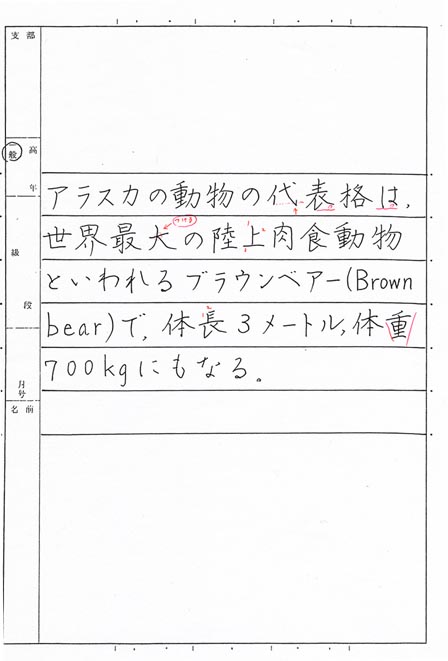 支部
一般
高
年
級
段
月号
名前
アラスカの動物の代表格は,
つける
世界最大の陸上肉食動物
といわれるブラウンベアー(Brown
bear)で,体長3メートル,体重
700kgにもなる。